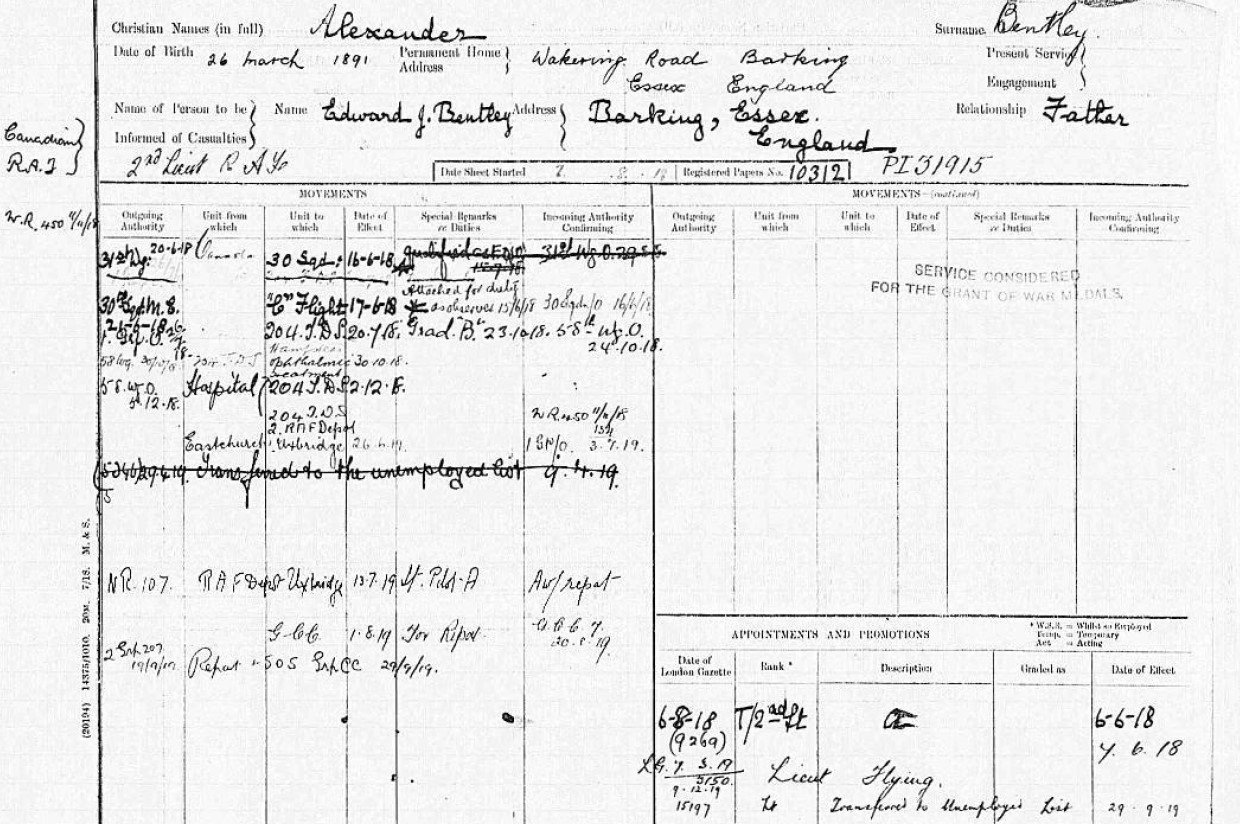 Christian Names (in full) Alexander Surname Bentley.
Date of Birth 26 March 1891 Permanent Home Address Wakering Road Barking Essex England Present Service Engagement
Name of Person to be Informed of Casualties Name Edward J. Bentley Address Barking, Essex. England Relationship Father
Canadian
2nd Lieut R A F
Date Sheet Started Registered Papers No. 10312 PI 31915
W.R. 450 11/11/18
MOVEMENTS
Outgoing Authority Unit from which Unit to which Date of Effect Special Remarks re Duties Incoming Authority Confirming
20-6-18
31st Wg. Canada 30 Sqd: 16-6-18
Attached for duty
"C" Flight 17-6-18 as observer 15/6/18 30 Sqdn/O 16/6/18
21-6-18
204 T.D.S. 20.7.18. Grad. "B". 23.10.18. 58th Wg. O.
24.10.18.
58 Wg. 204 T.D.S Ophthalmic 30.10.18.
treatment
58. Wg O. Hospital 204 T.D.S 2.12.18.
5.12.18.
204 T.D.S W.R. 450 11/11/18
2. RAF Depot
Eastchurch Uxbridge
Transferred to the unemployed list 9.4.19.
NR. 107. RAF Depot Uxbridge 13.7.19 Lt. Pilot-A Aw/repat
1.8.19 For Repat.
20.8.19
Repat SOS
(20194) 14375/1010. 20M. 7/18. M. & S.
MOVEMENTS—(continued)
Outgoing Authority Unit from which Unit to which Date of Effect Special Remarks re Duties Incoming Authority Confirming
SERVICE CONSIDERED
FOR THE GRANT OF WAR MEDALS.
APPOINTMENTS AND PROMOTIONS
* W.S.E. = Whilst so Employed
Temp. = Temporary
Act = Acting
Date of London Gazette Rank * Description Graded as Date of Effect
6-8-18 T/2nd Lt 6-6-18
(9269) 7.6.18
Lieut Flying.
9.12.19
15197 Lt Transferred to Unemployed List 29.9.19